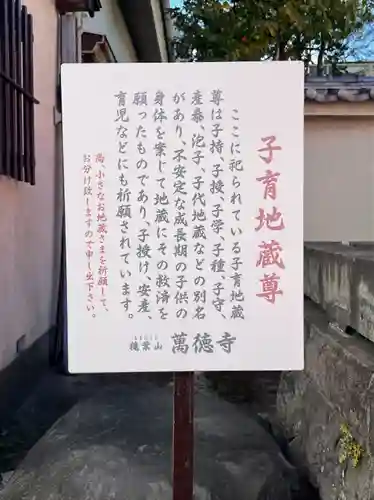 子育地蔵尊
ここに祀られている子育地蔵
尊は子持、子授、子学、子種、子守、
産桑、泡子、子代地蔵などの別名
があり、不安定な成長期の子供の
身体を案じて地蔵にその救済を
願ったものであり、子授け、安産、
育児などにも祈願されています。
尚、小さなお地蔵さまを祈願して、
お分け致しますので申し出下さい。
萬徳寺